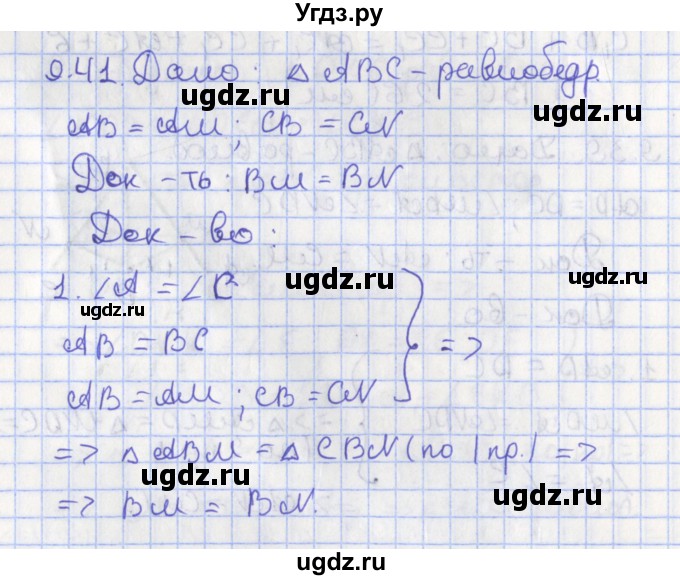 Угдз.ру
9.41. Дано: △ ABC - равнобедр
AB = AM; CB = CN
Док-ть: BM = BN
Док-во:
1. ∠A = ∠C
AB = BC
AB = AM; CB = CN } =>
=> △ ABM = △ CBN (по I пр.) =>
=> BM = BN.
ugdz.ru
ugdz.ru
ugdz.ru
ugdz.ru
ugdz.ru
ugdz.ru
ugdz.ru
ugdz.ru
ugdz.ru
ugdz.ru
Угдз.ру